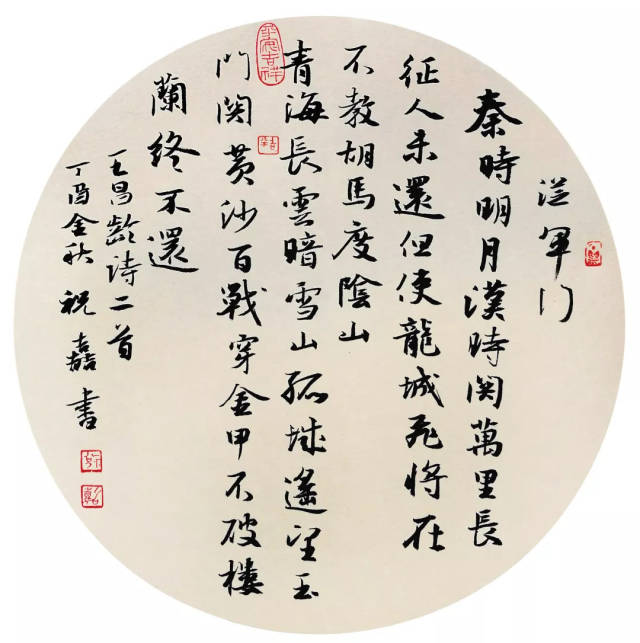 從軍行
秦時明月漢時関萬里長
征人未還但使龍城飛將在
不教胡馬度陰山
平安吉祥
青海長雲暗雪山孤城遙望玉
門関黄沙百戰穿金甲不破樓
蘭終不還
王昌齡詩二首
丁酉金秋祝嘉書